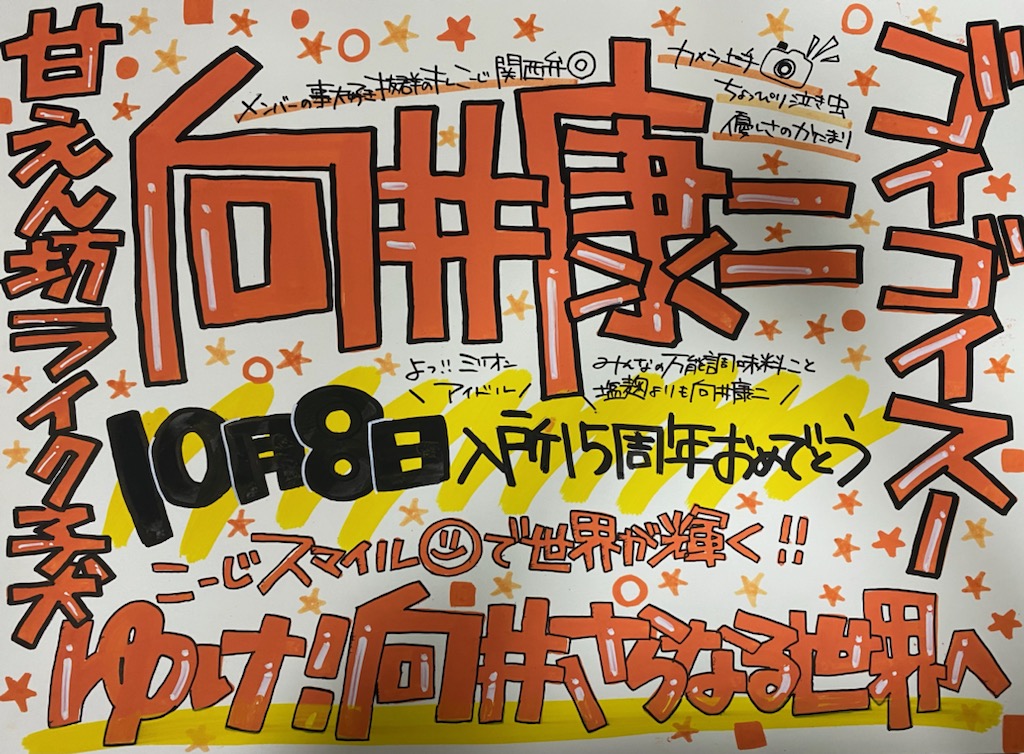 メンバーの事大好き 抜群のオレンジ 関西弁◎
カメラ女子
ちょっぴり泣き虫
優しさのかたまり
向井康二
ゴイゴイスー
甘えん坊ライク子犬
よっ!! ミリオン
アイドル
みんなの万能調味料こと
塩麹よりも向井康二
10月8日 入所15周年おめでとう
こーじスマイルで世界が輝く!!
ゆけ!!向井さらなる世界へ